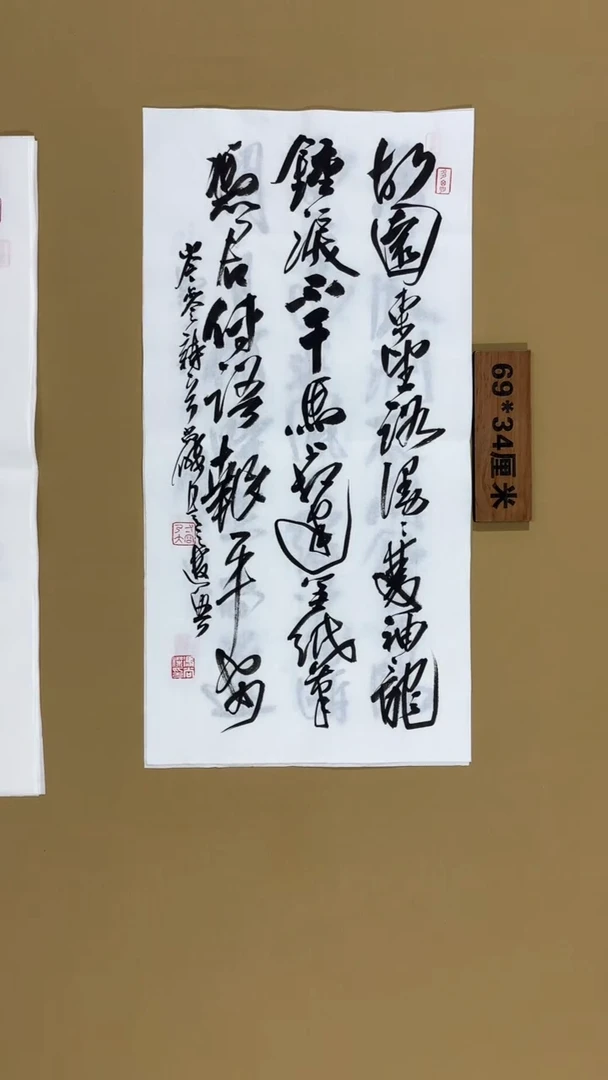 故園東望路漫〻雙袖龍
鍾淚不干馬上相逢無紙筆
憑君傳語報平安
岑參詩
69*34厘米